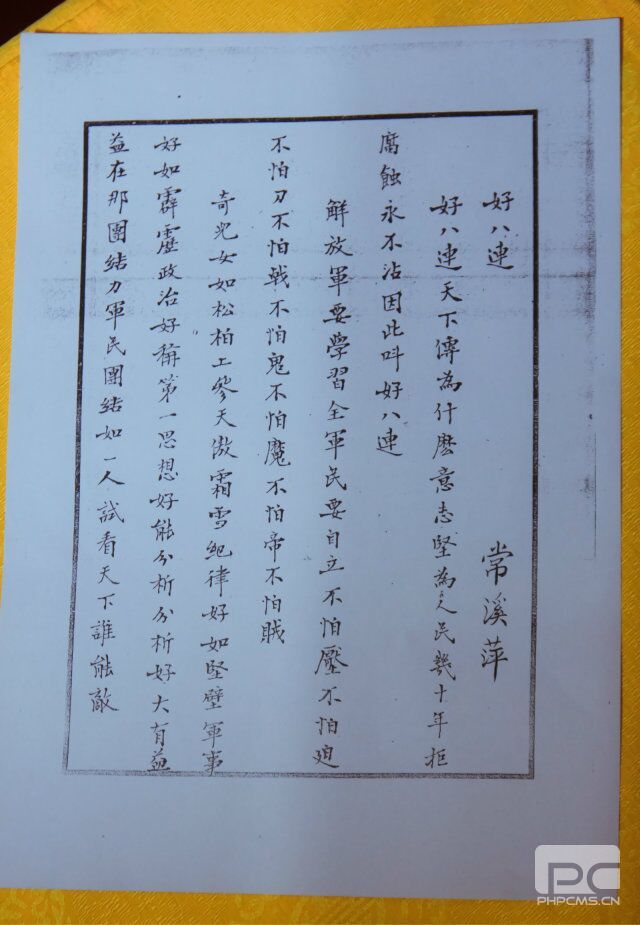 好八連
常溪萍
好八連天下傳為什麽意志堅為人民幾十年拒
腐蝕永不沾因此叫好八連
解放軍要學習全軍民要自立不怕壓不怕廹
不怕刀不怕戟不怕鬼不怕魔不怕帝不怕賊
奇兒女如松柏上參天傲霜雪紀律好如堅壁軍事
好如霹靂政治好稱第一思想好能分析分析好大有益
益在那團結力軍民團結如一人試看天下誰能敵
PC
PHPCMS.CN